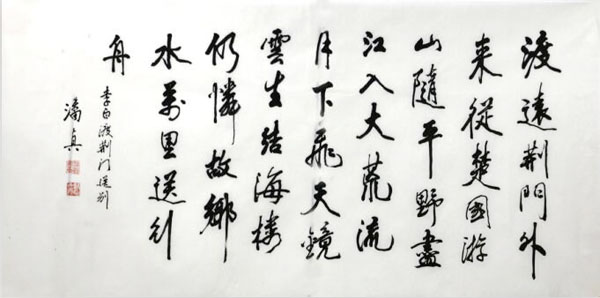 渡遠荆門外
来從楚國游
山隨平野盡
江入大荒流
月下飛天鏡
雲生结海楼
仍憐故鄉
水萬里送行
舟
李白渡荆门送别
潘真